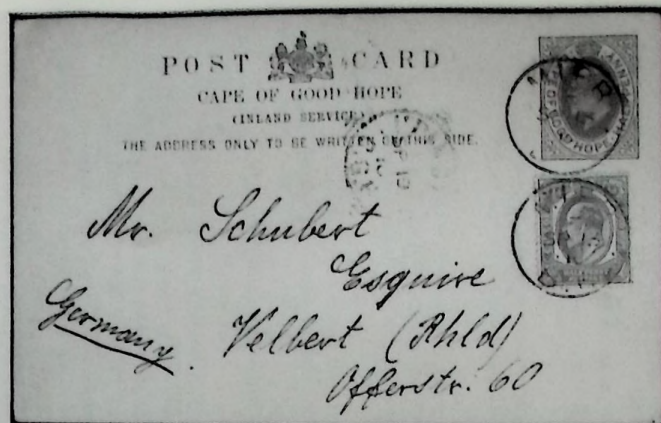 POST CARD
CAPE OF GOOD HOPE
(INLAND SERVICE)
THE ADDRESS ONLY TO BE WRITTEN ON THIS SIDE.
Mr. Schubert
Esquire
Germany. Velbert (Rhld)
Offerstr. 60